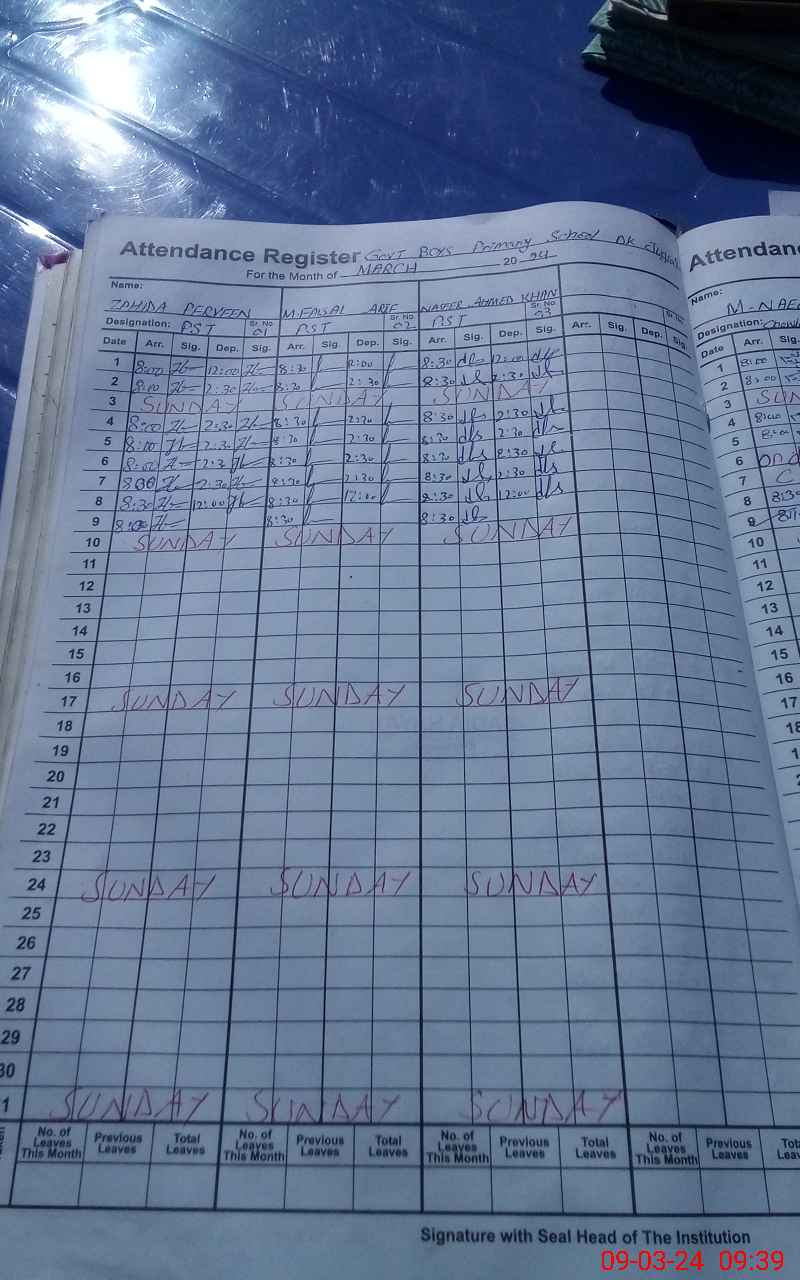 Attendance Register Govt BOYS Primary School DK
Attendanc
For the Month of MARCH 20 24
Name:
Name:
ZAHIDA PERVEEN M.FAISAL ARIF NASEER AHMED KHAN
M-NAE
Designation: PST Sr. No. 01 PST Sr. No. 02 PST Sr. No. 03
Designation:
Date Arr. Sig. Dep. Sig. Arr. Sig. Dep. Sig. Arr. Sig. Dep. Sig. Arr. Sig. Dep. Sig.
Date Arr. Sig
1 8:00 12:00 8:30 12:00 8:30 12:00
2 8:00 2:30 8:30 2:30 8:30 2:30
3 SUNDAY SUNDAY SUNDAY
4 8:00 2:30 8:30 2:30 8:30 2:30
5 8:00 2:30 8:30 2:30 8:30 2:30
6 8:00 2:30 8:30 2:30 8:30 2:30
7 8:00 2:30 8:30 2:30 8:30 2:30
8 8:30 12:00 8:30 12:00 8:30 12:00
9 8:00 8:30 8:30
10 SUNDAY SUNDAY SUNDAY
11
12
13
14
15
16
17 SUNDAY SUNDAY SUNDAY
18
19
20
21
22
23
24 SUNDAY SUNDAY SUNDAY
25
26
27
28
29
30
1 SUNDAY SUNDAY SUNDAY
1 8:00
2 8:00
3 SUN
4 8:00
5 8:00
6
7
8 8:30
9
10
11
12
13
14
15
16
17
18
No. of Leaves This Month Previous Leaves Total Leaves No. of Leaves This Month Previous Leaves Total Leaves No. of Leaves This Month Previous Leaves Total Leaves No. of Leaves This Month Previous Leaves Tot Leav
Signature with Seal Head of The Institution
09-03-24 09:39